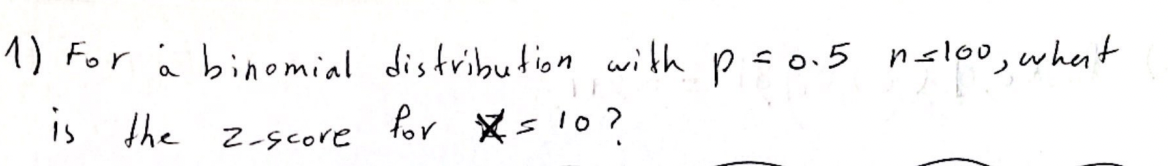 1) For a binomial distribution with p = 0.5 n=100, what
is the z-score for X = 10?